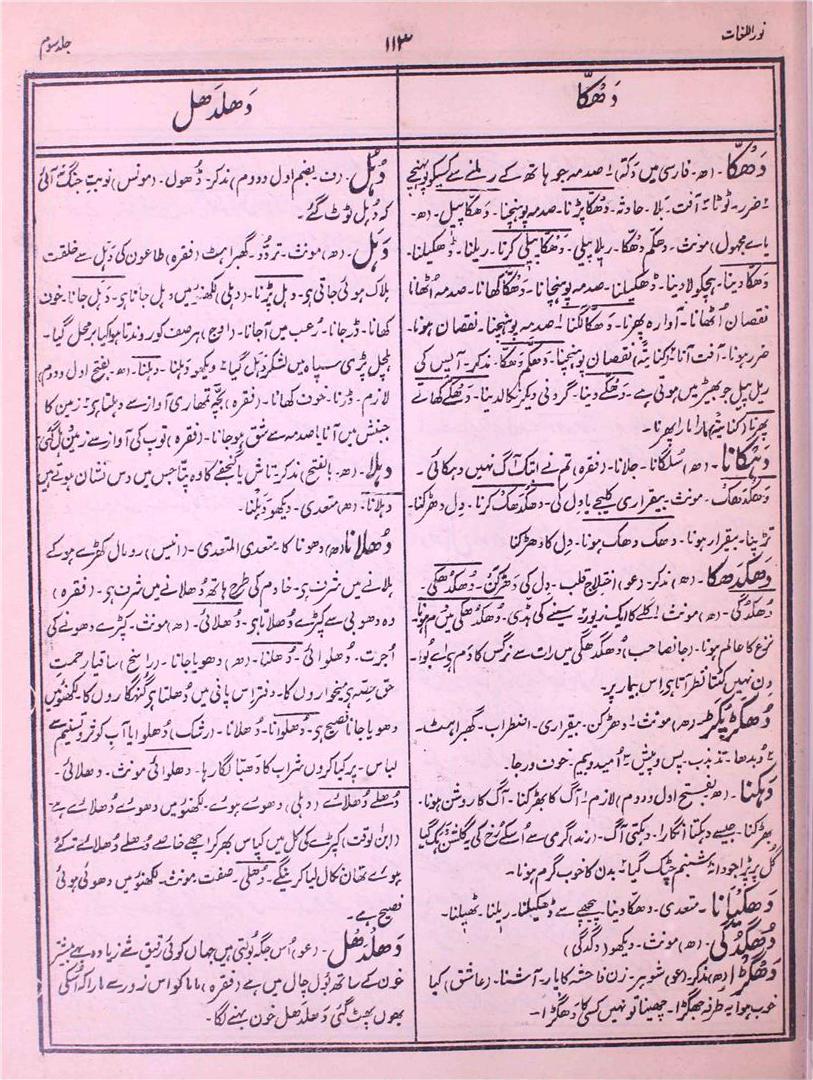 نور اللغات
۱۱۳
جلد سوم
دَھکّا
دَھلدَھل
دَھکّا۔ (ھ۔ فارسی میں دکّہ) ۱ صدمہ جو ہاتھ کے ریلنے سے کسی کو پہنچے
۲ ضرر۔ ٹوٹا ۳ آفت۔ بلا۔ حادثہ۔ دَھکّا پڑنا۔ صدمہ پہونچنا۔ دَھکّا پیل۔ (ھ۔
یائے مجہول) مونث۔ دھکم دُھکّا۔ ریلا پیلی۔ دَھکّا پیلی کرنا۔ ریلنا۔ ڈھکیلنا۔
دَھکّا دینا۔ ہچکولا دینا۔ ڈھکیلنا۔ صدمہ پہونچانا۔ دَھکّا کھانا۔ صدمہ اُٹھانا
نقصان اُٹھانا۔ آوارہ پھرنا۔ دَھکّا لگنا ۱ صدمہ پہونچنا۔ نقصان ہونا۔
ضرر ہونا۔ آفت آنا ۲ (کنایۃً) نقصان پہونچنا۔ دھکّم دَھکّا۔ مذکر۔ آپس کی
ریل پیل جو بھیڑ میں ہوتی ہے۔ دَھکّے دینا۔ گردنی دیکر نکالدینا۔ دَھکّے کھاتے
پھرنا (کنایۃً) مارا مارا پھرنا۔
دَہکانا۔ (ھ) سُلگانا۔ جلانا۔ (فقرہ) تم نے ابتک آگ نہیں دہکائی۔
دَھکدَھک۔ مونث۔ بیقراری کلیجے یا دل کی۔ دَھکدَھک کرنا۔ دِل دھڑکنا۔
تڑپنا۔ بیقرار ہونا۔ دھک دھک ہونا۔ دِل کا دھڑکنا
دَھکدَھکا۔ (ھ) مذکر۔ (عو) اختلاج قلب۔ دِل کی دَھڑکن۔ دُھکدُھکی۔
دُھکدُگی۔ (ھ) مونث ۱ گلے کا ایک زیور ۲ سینے کی ہڈی۔ دُھکدُھکی میں دم ہونا
نزع کا عالم ہونا۔ (جانصاحب) دُھکدُھکی میں رات سے نرگس کا دَم ہی اے بوا۔
دِن نہیں کٹتا نظر آتا ہی اس بیمار پر۔
دُھکڑ پکڑ۔ (ھ) مونث ۱ دھڑکن۔ بیقراری۔ اضطراب۔ گھبراہٹ۔
۲ دُبدھا۔ تذبذب۔ پس و پیش ۳ اُمید و بیم۔ خوف و رجا۔
دَہکنا۔ (ھ۔ بفتح اول و دوم) لازم ۱ آگ کا بھڑکنا۔ آگ کا روشن ہونا۔
بھڑکنا۔ جیسے دہکتا انگارا۔ دہکتی آگ۔ (رند) گرمی سے اُسکے رُخ کی یہ گلشن دَہک گیا
گُل پر پڑا جو دانۂ شبنم چٹک گیا ۲ بدن کا خوب گرم ہونا۔
دَھکیانا۔ متعدی۔ دھکا دینا۔ پیچھے سے ڈھکیلنا۔ ریلنا۔ ٹھیلنا۔
دُھگدُگی۔ (ھ) مونث۔ دیکھو (دگدگی)
دَھگڑا۔ (ھ) مذکر۔ (عو) شوہر۔ زن فاحشہ کا یار۔ آشنا۔ (عاشق) کیا
خوب ہوا یہ طرفہ جھگڑا۔ چھینا تو نہیں کسی کا دَھگڑا۔
دُہُل۔ (ف۔ بضم اول و دوم) مذکر۔ ڈھول۔ (مونس) نوبت جنگ نہ آئی
کہ دُہل ٹوٹ گئے۔
دَہل۔ (ھ) مونث۔ تردّد۔ گھبراہٹ (فقرہ) طاعون کی دَہل سے خلقت
ہلاک ہوئی جاتی ہی۔ دہل پڑنا۔ (دہلی) لکھنؤ میں دہل جانا ہی۔ دَہل جانا۔ خوف
کھانا۔ ڈر جانا۔ رُعب میں آجانا۔ (اوج) ہر صف کو روندتا ہوا کیا بر محل گیا۔
ہلچل پڑی سپاہ میں لشکر دَہل گیا ۲ دیکھو دَہلنا۔ دہلنا۔ (ھ۔ بفتح اول و دوم)
لازم۔ ڈرنا۔ خوف کھانا۔ (فقرہ) بچّہ تمھاری آواز سے دہلتا ہی ۲ زمین کا
جنبش میں آنا یا صدمہ سے شق ہوجانا۔ (فقرہ) توپ کی آواز سے زمین دہل گئی
دہلا۔ (ھ۔ بالفتح) مذکر۔ تاش یا گنجفے کا وہ پتّا جس میں دس نشان ہوتے ہیں
دہلانا۔ (ھ) متعدی۔ دیکھو دَہلنا۔
دُھلانا (ھ) دھونا کا متعدی المتعدی۔ (انیس) رومال کھڑے ہوکے
ہلانے میں شرف ہی۔ خادم کی طرح ہاتھ دُھلانے میں شرف ہی۔ (فقرہ)
وہ دھوبی سے کپڑے دُھلاتا ہی۔ دُھلائی۔ (ھ) مونث۔ کپڑے دھونے کی
اُجرت۔ دُھلوائی۔ دُھلنا۔ (ھ) دھویا جانا۔ (راسخ) ساقیا رحمت
حق حصّہ ہی میخواروں کا۔ دفتر اس پانی میں دُھلتا ہی گنہگاروں کا۔ لکھنؤ میں
دھویا جانا فصیح ہی۔ دُھلوانا۔ دھلانا۔ (رشک) دُھلوایا آب کوثر و تسنیم سے
لباس۔ پر کیا کروں شراب کا دھبّا لگا رہا۔ دھلوائی مونث۔ دھلائی۔
دُھلے دُھلائے (دہلی) دھوئے ہوئے۔ لکھنؤ میں دھوئے دُھلائے ہے۔
(ابن الوقت) کپڑے کی کل میں کپاس بھر کر اچھے خاصے دُھلے دُھلائے تہ کئے
ہوئے تھان نکال لیا کرینگے۔ دُھلی۔ صفت۔ مونث۔ لکھنؤ میں دھوئی ہوئی
فصیح ہے۔
دَھلدَھل۔ (عو) اُس جگہ بولتی ہیں جہاں کوئی رقیق شے زیادہ بہے بیشتر
خون کے ساتھ بول چال میں ہے (فقرہ) ماما کو اس زور سے مارا کہ اُسکی
بھوں پھٹ گئی دَھلدَھل خون بہنے لگا۔